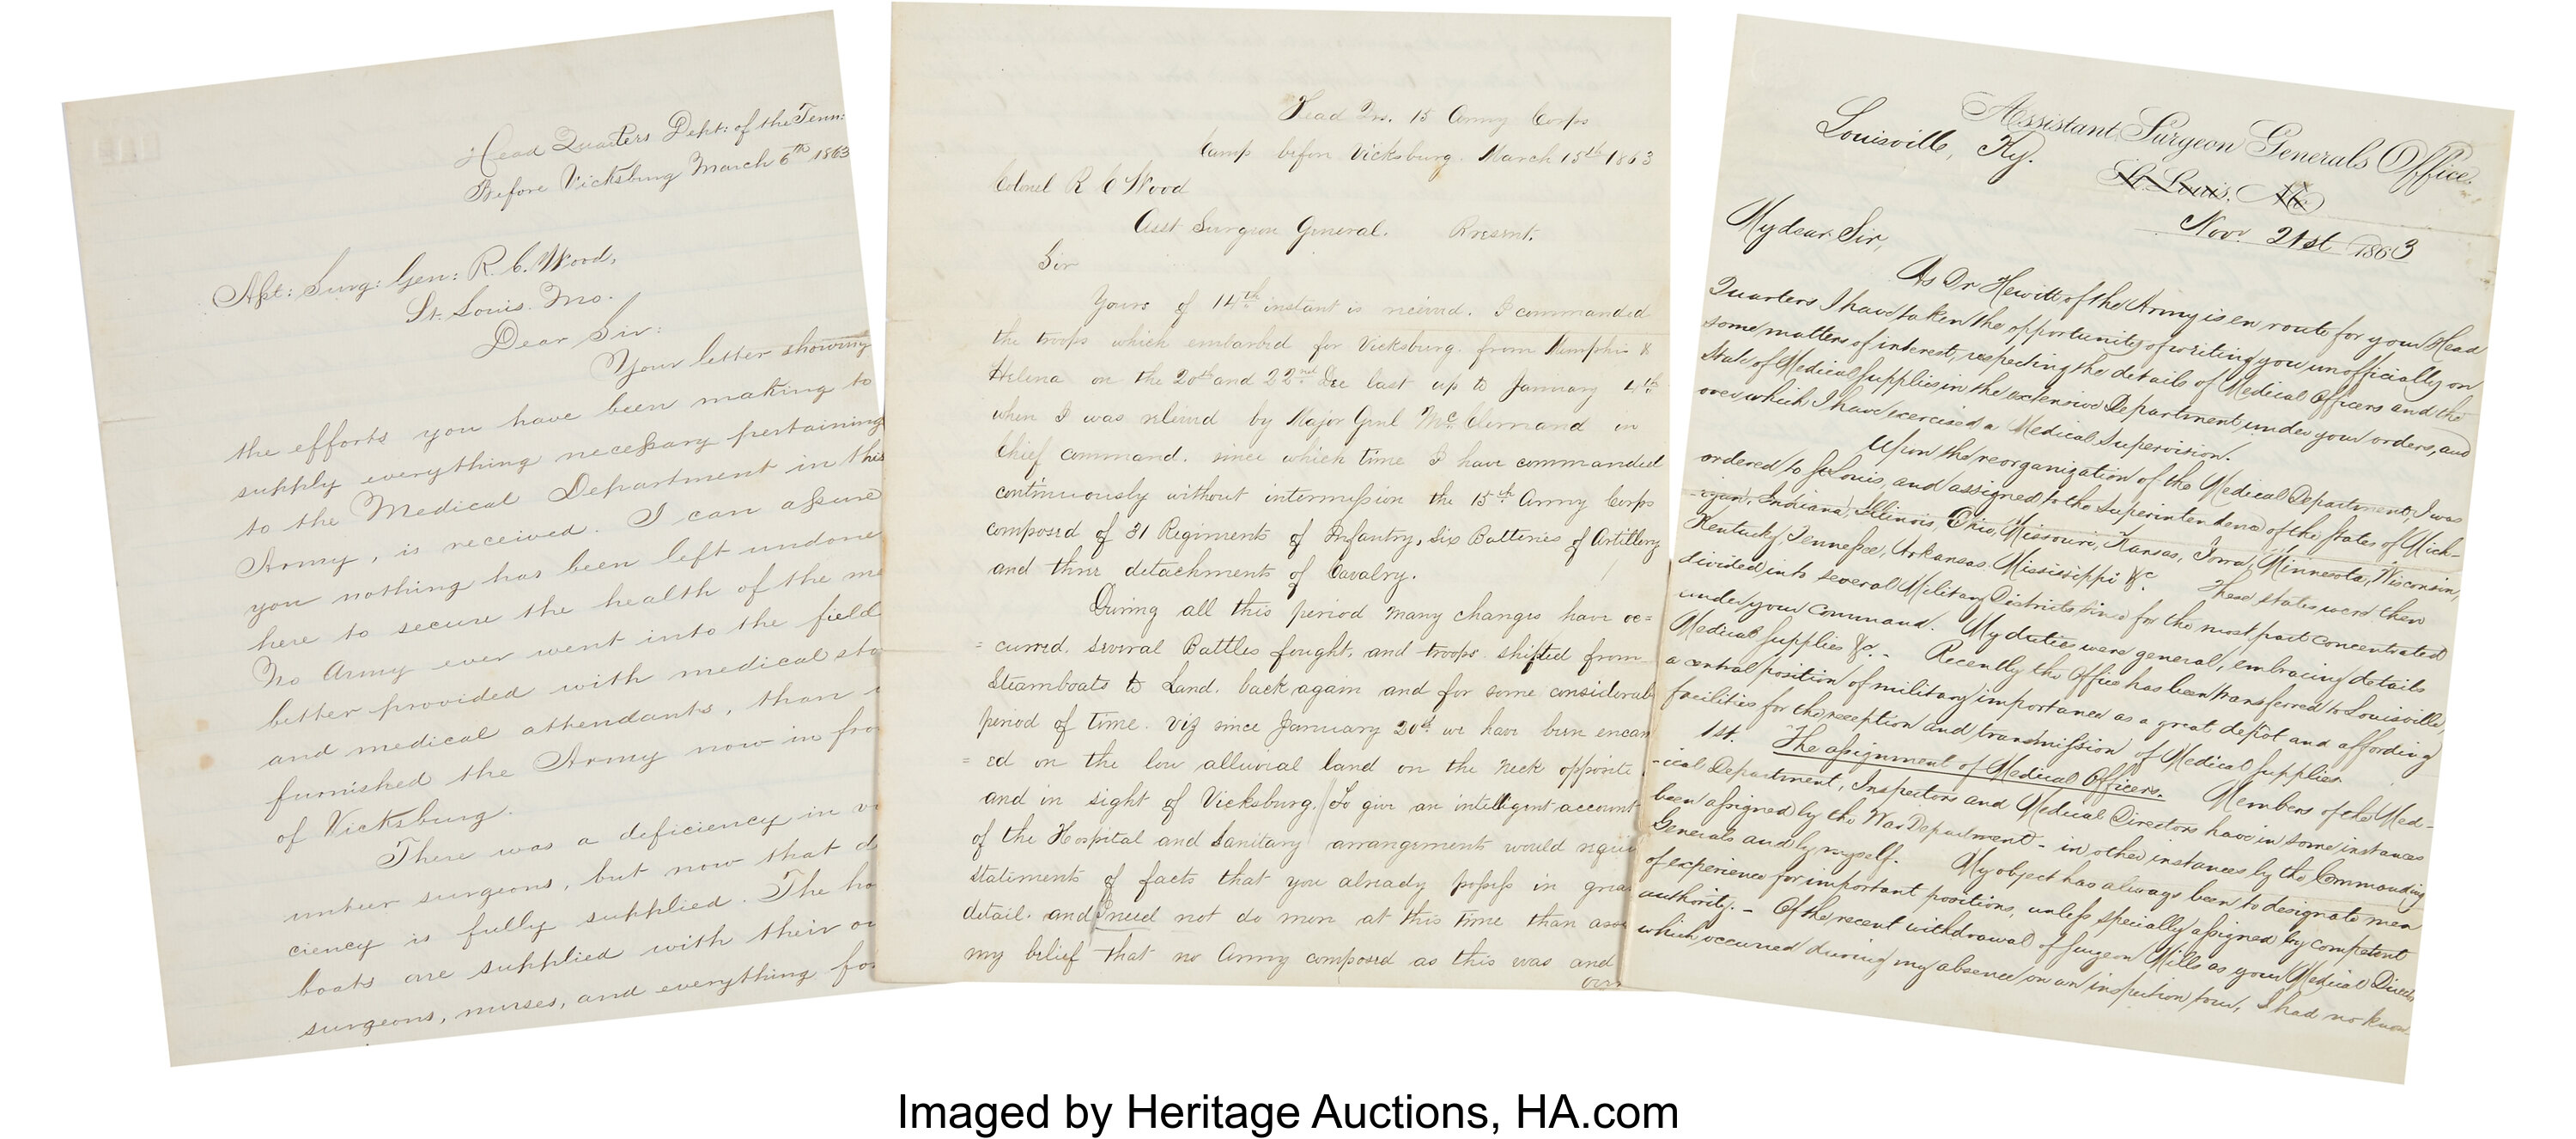 Head Quarters Dept: of the Tenn:
Before Vicksburg March 6th 1863
Asst: Surg: Gen: R. C. Wood,
St. Louis. Mo.
Dear Sir:
Your letter showing
the efforts you have been making to
supply everything necessary pertaining
to the Medical Department in this
Army, is received. I can assure
you nothing has been left undone
here to secure the health of the me
No Army ever went into the field
better provided with medical sto
and medical attendants, than
furnished the Army now in fro
of Vicksburg.
There was a deficiency in vo
unteer surgeons, but now that d
ciency is fully supplied. The ho
boats are supplied with their ow
surgeons, nurses, and everything for
Head Qrs. 15 Army Corps
Camp before Vicksburg. March 15th 1863
Colonel R C Wood
Asst Surgeon General. Present.
Sir
Yours of 14th instant is received. I commanded
the troops which embarked for Vicksburg from Memphis &
Helena on the 20th and 22nd Dec last up to January 4th
when I was relieved by Major Genl McClernand in
Chief command. since which time I have commanded
continuously without intermission the 15th Army Corps
composed of 31 Regiments of Infantry, Six Batteries of Artillery
and three detachments of Cavalry.
During all this period many changes have oc=
=curred. several Battles fought, and troops shifted from
Steamboats to Land, back again and for some considerabl
period of time. viz since January 20th we have been encam
=ed on the low alluvial land on the neck opposite
and in sight of Vicksburg. To give an intelligent account
of the Hospital and Sanitary arrangements would requir
statements of facts that you already possess in grea
detail. and I need not do more at this time than asse
my belief that no Army composed as this was and
our
Assistant Surgeon Generals Office,
Louisville, Ky.
St. Louis, Mo
Nov. 21st 1863
My dear Sir,
As Dr Hewitt of the Army is en route for your Head
Quarters I have taken the opportunity of writing you unofficially on
some matters of interest, respecting the details of Medical Officers and the
State of Medical Supplies in the extensive Department under your orders, and
over which I have exercised a Medical Supervision.
Upon the reorganization of the Medical Department, I was
ordered to St Louis, and assigned to the Superintendence of the States of Mich-
-igan, Indiana, Illinois, Ohio, Missouri, Kansas, Iowa, Minnesota, Wisconsin,
Kentucky, Tennessee, Arkansas, Mississippi &c. These states were then
divided into several Military Districts since for the most part concentrated
under your command. My duties were general, embracing details
Medical Supplies &c. - Recently the Office has been transferred to Louisville,
a central position of military importance as a great depot and affording
facilities for the reception and transmission of Medical Supplies.
1st. The assignment of Medical Officers. Members of the Med-
-ical Department, Inspectors and Medical Directors have in some instances
been assigned by the War Department - in other instances by the Commanding
Generals and by myself. My object has always been to designate men
of experience for important positions, unless specially assigned by competent
authority. - Of the recent withdrawal of Surgeon Mills as your Medical Direct
which occurred during my absence on an inspection tour, I had no know
Imaged by Heritage Auctions, HA.com